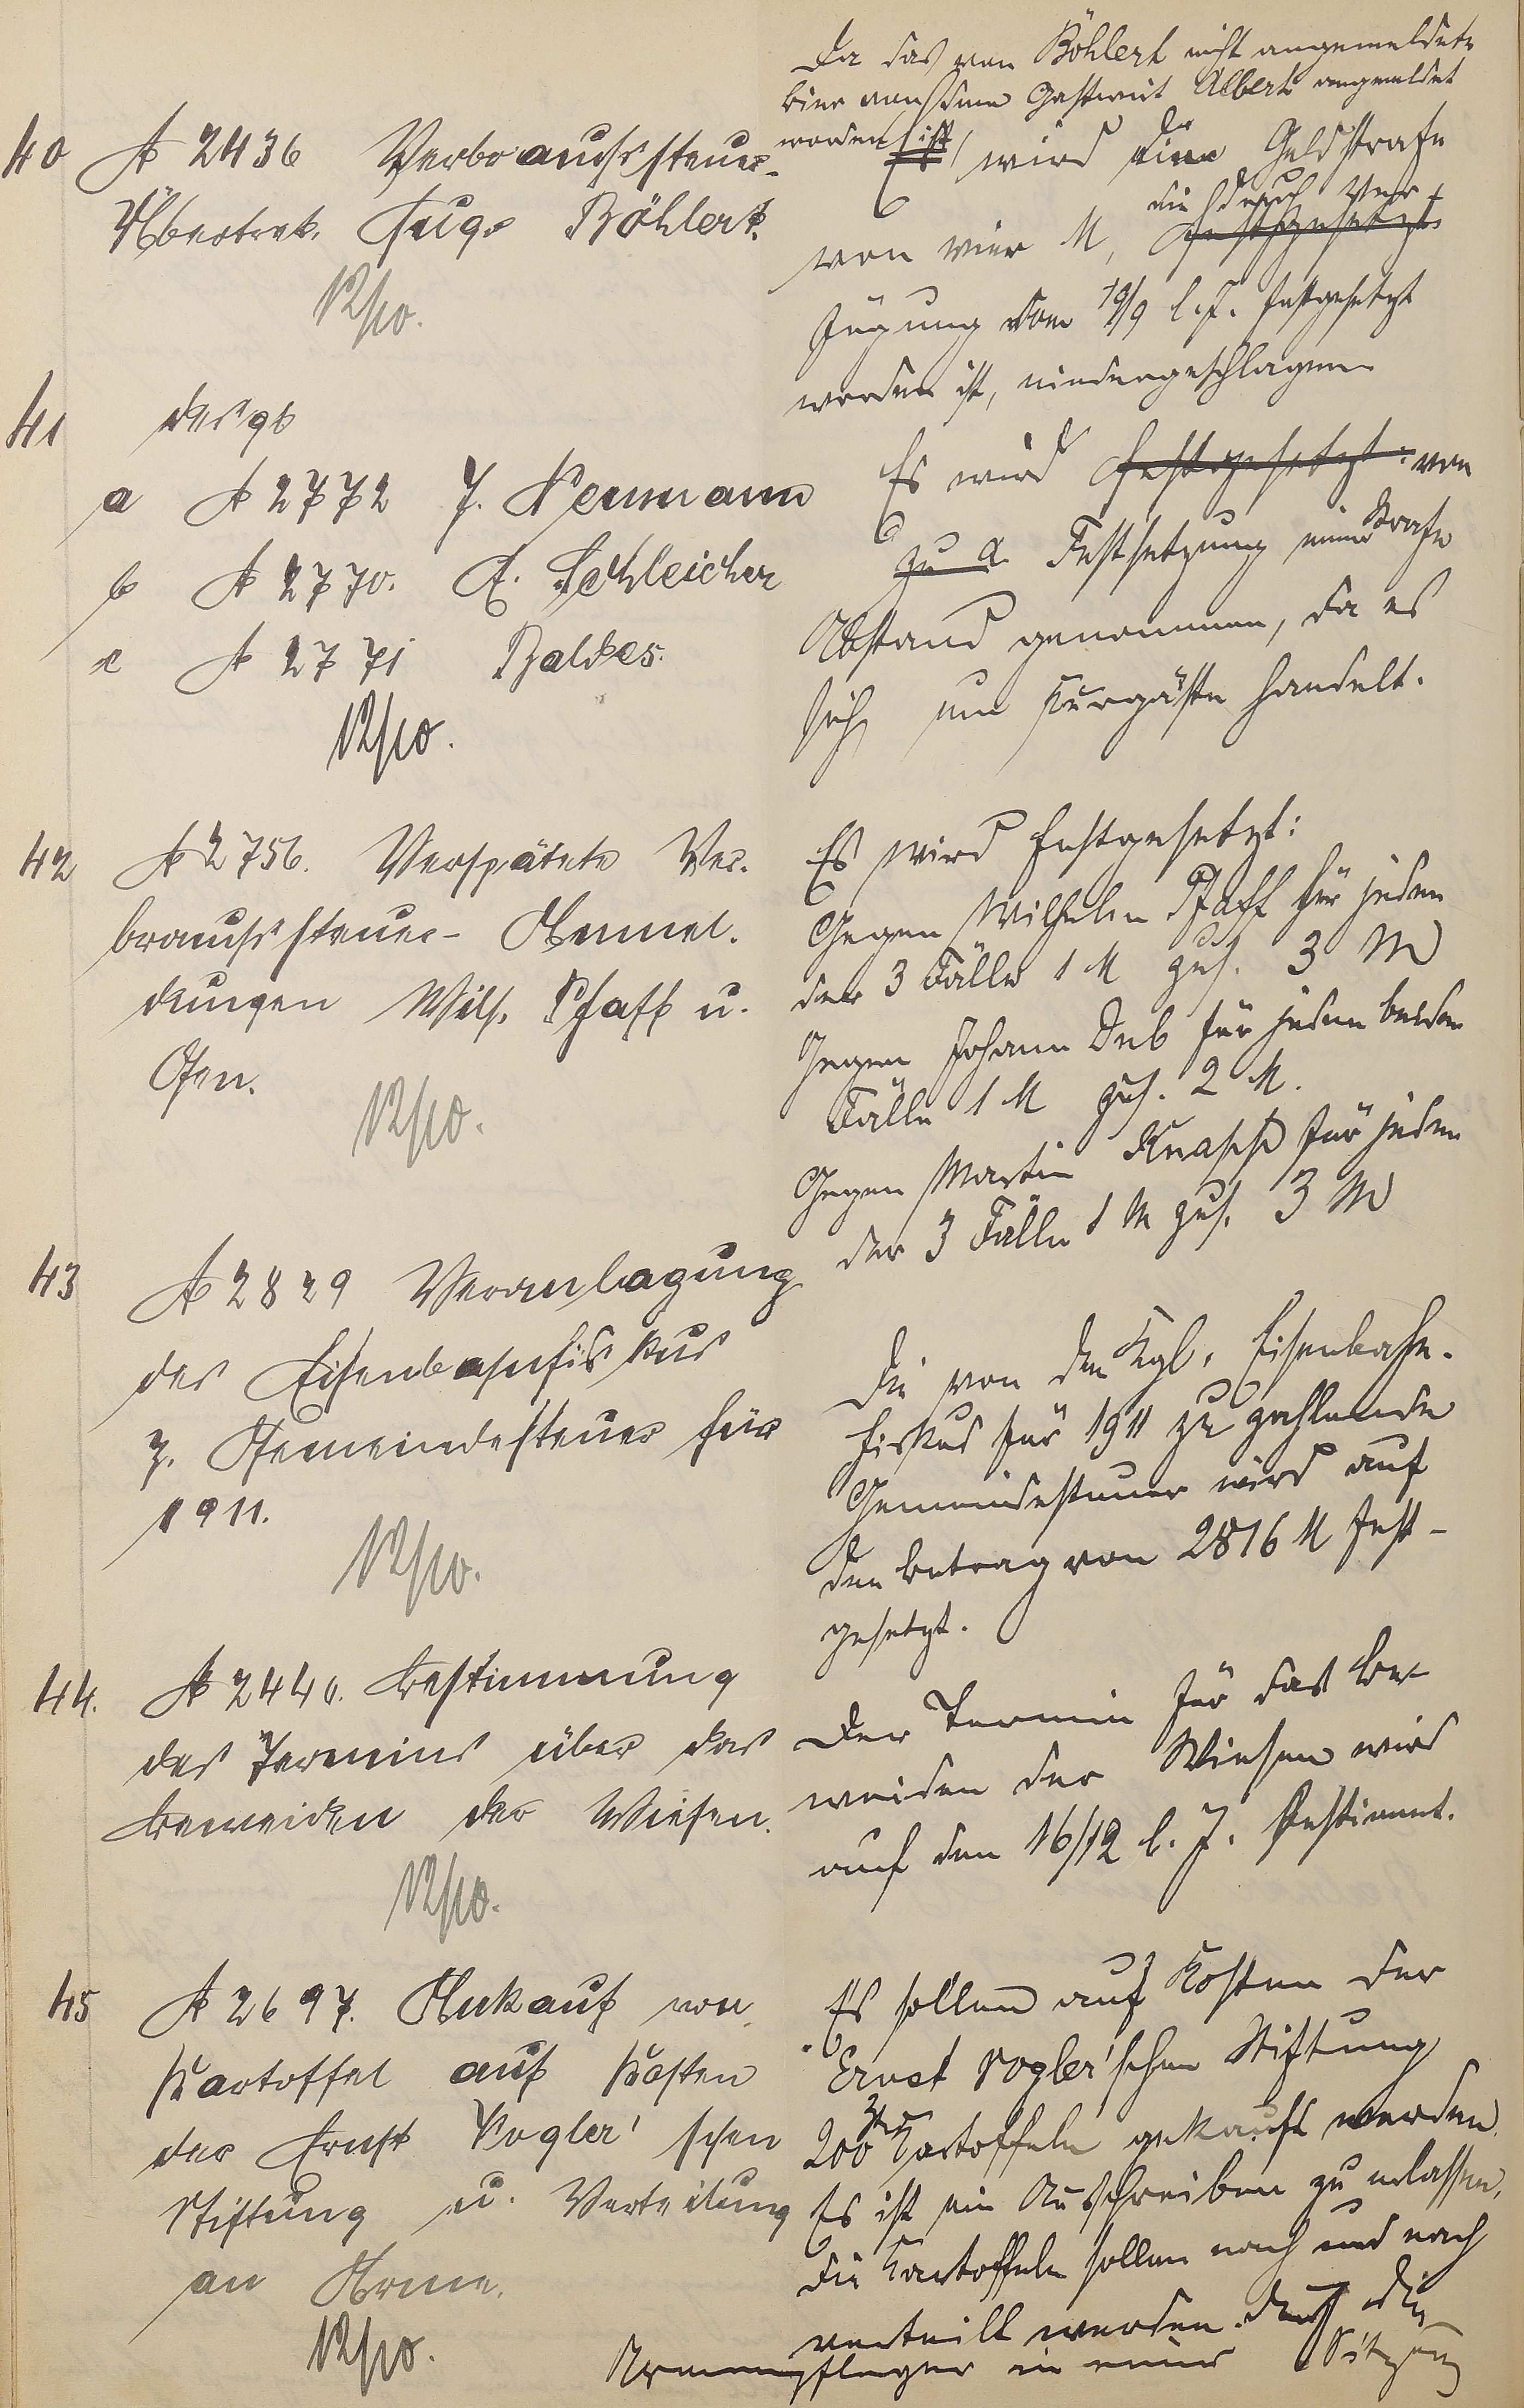 40 A 2436 Verbrauchssteuer-
Übertret. Hugo Böhlert.
12/10.
Da das von Böhlert nicht angemeldete
Bier von dem Gastwirt Albert angemeldet
worden ist, wird die Geldstrafe
von vier M, die durch Ver-
fügung vom 19/9 l. J. festgesetzt
worden ist, niedergeschlagen
41 desgl
a A 2772 J. Neumann
b A 2770. A. Schleicher
c A 2771 Baldes.
12/10.
Es wird festgesetzt: von
zu a. Festsetzung einer Strafe
Abstand genommen, da es
sich um Kurgäste handelt.
42 A 2756. Verspätete Ver-
brauchssteuer- Anmel-
dungen Wilh. Pfaff u.
Gen.
12/10.
Es wird festgesetzt:
Gegen Wilhelm Pfaff für jeden
der 3 Fälle 1 M zus. 3 M
Gegen Johann Deb für jeden beider
Fälle 1 M zus. 2 M.
Gegen Martin für jeden
der 3 Fälle 1 M zus. 3 M
43 A 2829 Veranlagung
des Eisenbahnfiskus
z. Gemeindesteuer für
1911.
12/10.
Die von dem Kgl. Eisenbahn-
fiskus für 1911 zu zahlende
Gemeindesteuer wird auf
den Betrag von 2816 M fest-
gesetzt.
44. A 2440. Bestimmung
des Termins über das
Beweiden der Wiesen.
12/10.
Der Termin für das Be-
weiden der Wiesen wird
auf den 16/12 l. J. bestimmt.
45 A 2697. Ankauf von
Kartoffel auf Kosten
der Ernst Vogler'schen
Stiftung u. Verteilung
an Arme.
12/10.
Es sollen auf Kosten der
Ernst Vogler'schen Stiftung
200 Ztr Kartoffeln gekauft werden.
Es ist ein Ausschreiben zu erlassen.
Die Kartoffeln sollen nach und nach
verteilt werden. durch die
Armenpfleger in einer Sitzung